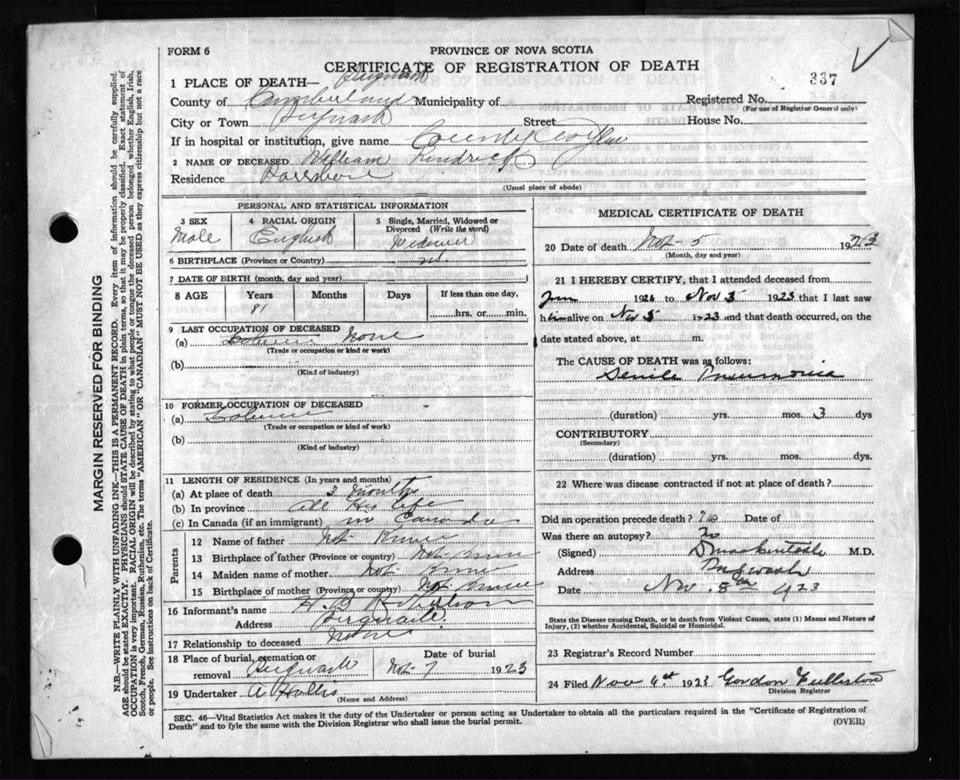 FORM 6
PROVINCE OF NOVA SCOTIA
CERTIFICATE OF REGISTRATION OF DEATH
337
1 PLACE OF DEATH— Pugwash
County of Cumberland Municipality of
Registered No.
(For use of Registrar General only)
City or Town Pugwash Street House No.
If in hospital or institution, give name County
2 NAME OF DECEASED William
Residence
(Usual place of abode)
PERSONAL AND STATISTICAL INFORMATION
3 SEX
Male
4 RACIAL ORIGIN
English
5 Single, Married, Widowed or Divorced (Write the word)
Widower
6 BIRTHPLACE (Province or Country)
7 DATE OF BIRTH (month, day and year)
8 AGE Years Months Days If less than one day,
81
hrs. or min.
9 LAST OCCUPATION OF DECEASED
(a) None
(Trade or occupation or kind or work)
(b)
(Kind of industry)
10 FORMER OCCUPATION OF DECEASED
(a)
(Trade or occupation or kind or work)
(b)
(Kind of industry)
11 LENGTH OF RESIDENCE (In years and months)
(a) At place of death 3 months
(b) In province all His life
(c) In Canada (if an immigrant) in Canada
Parents
12 Name of father Not
13 Birthplace of father (Province or country) Not
14 Maiden name of mother Not
15 Birthplace of mother (Province or country) Not
16 Informant's name
Address Pugwash
17 Relationship to deceased None
18 Place of burial, cremation or removal Pugwash
Date of burial
Nov 7 1923
19 Undertaker A Hollis
(Name and Address)
MEDICAL CERTIFICATE OF DEATH
20 Date of death Nov 5 1923
(Month, day and year)
21 I HEREBY CERTIFY, that I attended deceased from
192 to Nov 5 1923 that I last saw
him alive on Nov 5 1923 and that death occurred, on the
date stated above, at m.
The CAUSE OF DEATH was as follows:
Senile Pneumonia
(duration) yrs. mos. 3 dys
CONTRIBUTORY
(Secondary)
(duration) yrs. mos. dys.
22 Where was disease contracted if not at place of death?
Did an operation precede death? No Date of
Was there an autopsy? No
(Signed) Mackintosh M.D.
Address Pugwash
Date Nov. 5th 1923
State the Disease Causing Death, or in death from Violent Causes, state (1) Means and Nature of
Injury, (2) whether Accidental, Suicidal or Homicidal.
23 Registrar's Record Number
24 Filed Nov 6th 1923 Gordon Fullerton
Division Registrar
SEC. 46—Vital Statistics Act makes it the duty of the Undertaker or person acting as Undertaker to obtain all the particulars required in the "Certificate of Registration of
Death" and to fyle the same with the Division Registrar who shall issue the burial permit.
(OVER)
MARGIN RESERVED FOR BINDING
N.B.—WRITE PLAINLY WITH UNFADING INK—THIS IS A PERMANENT RECORD. Every item of information should be carefully supplied.
AGE should be stated EXACTLY. PHYSICIANS should STATE CAUSE OF DEATH in plain terms, so that it may be properly classified. Exact statement of
OCCUPATION is very important. RACIAL ORIGIN will be described by stating to what people or tongue the deceased person belonged whether English, Irish,
Scotch, French, German, Russian, Ruthenian, etc. The terms "AMERICAN" OR "CANADIAN" MUST NOT BE USED as they express citizenship but not a race
or people. See instructions on back of Certificate.